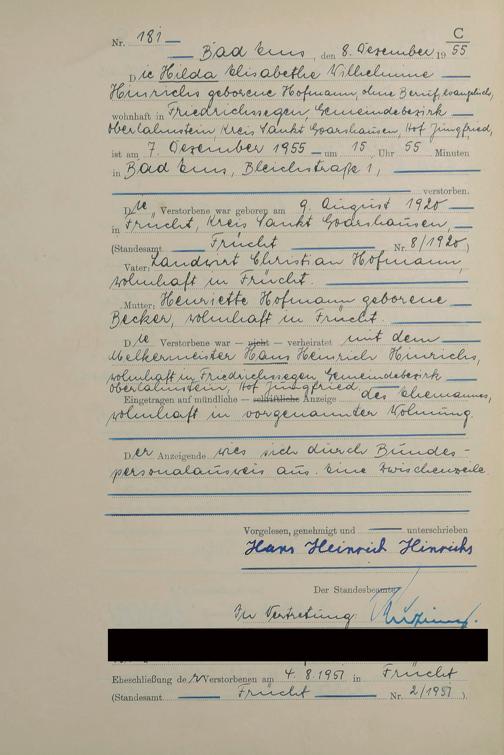 C
Nr. 181
Bad Ems, den 8. Dezember 1955
Die Hilda Elisabethe Wilhelmine
Hinrichs geborene Hofmann, ohne Beruf, evangelisch,
wohnhaft in Friedrichssegen, Gemeindebezirk
Oberlahnstein Kreis Sankt Goarshausen, Hof Jungfried,
ist am 7. Dezember 1955 um 15 Uhr 55 Minuten
in Bad Ems, Bleichstraße 1,
verstorben.
Die Verstorbene war geboren am 9. August 1920
in Frücht, Kreis Sankt Goarshausen,
(Standesamt Frücht Nr. 8/1920)
Vater: Landwirt Christian Hofmann,
wohnhaft in Frücht.
Mutter: Henriette Hofmann geborene
Becker, wohnhaft in Frücht.
Die Verstorbene war — nicht — verheiratet mit dem
Melkermeister Hans Heinrich Hinrichs,
wohnhaft in Friedrichssegen Gemeindebezirk
Oberlahnstein, Hof Jungfried,
Eingetragen auf mündliche — schriftliche — Anzeige des Ehemannes,
wohnhaft in vorgenannter Wohnung.
Der Anzeigende wies sich durch Bundes-
personalausweis aus. Eine Zwischenzeile
Vorgelesen, genehmigt und unterschrieben
Hans Heinrich Hinrichs
Der Standesbeamte
In Vertretung:
Eheschließung der Verstorbenen am 4.8.1951 in Frücht
(Standesamt Frücht Nr. 2/1951).